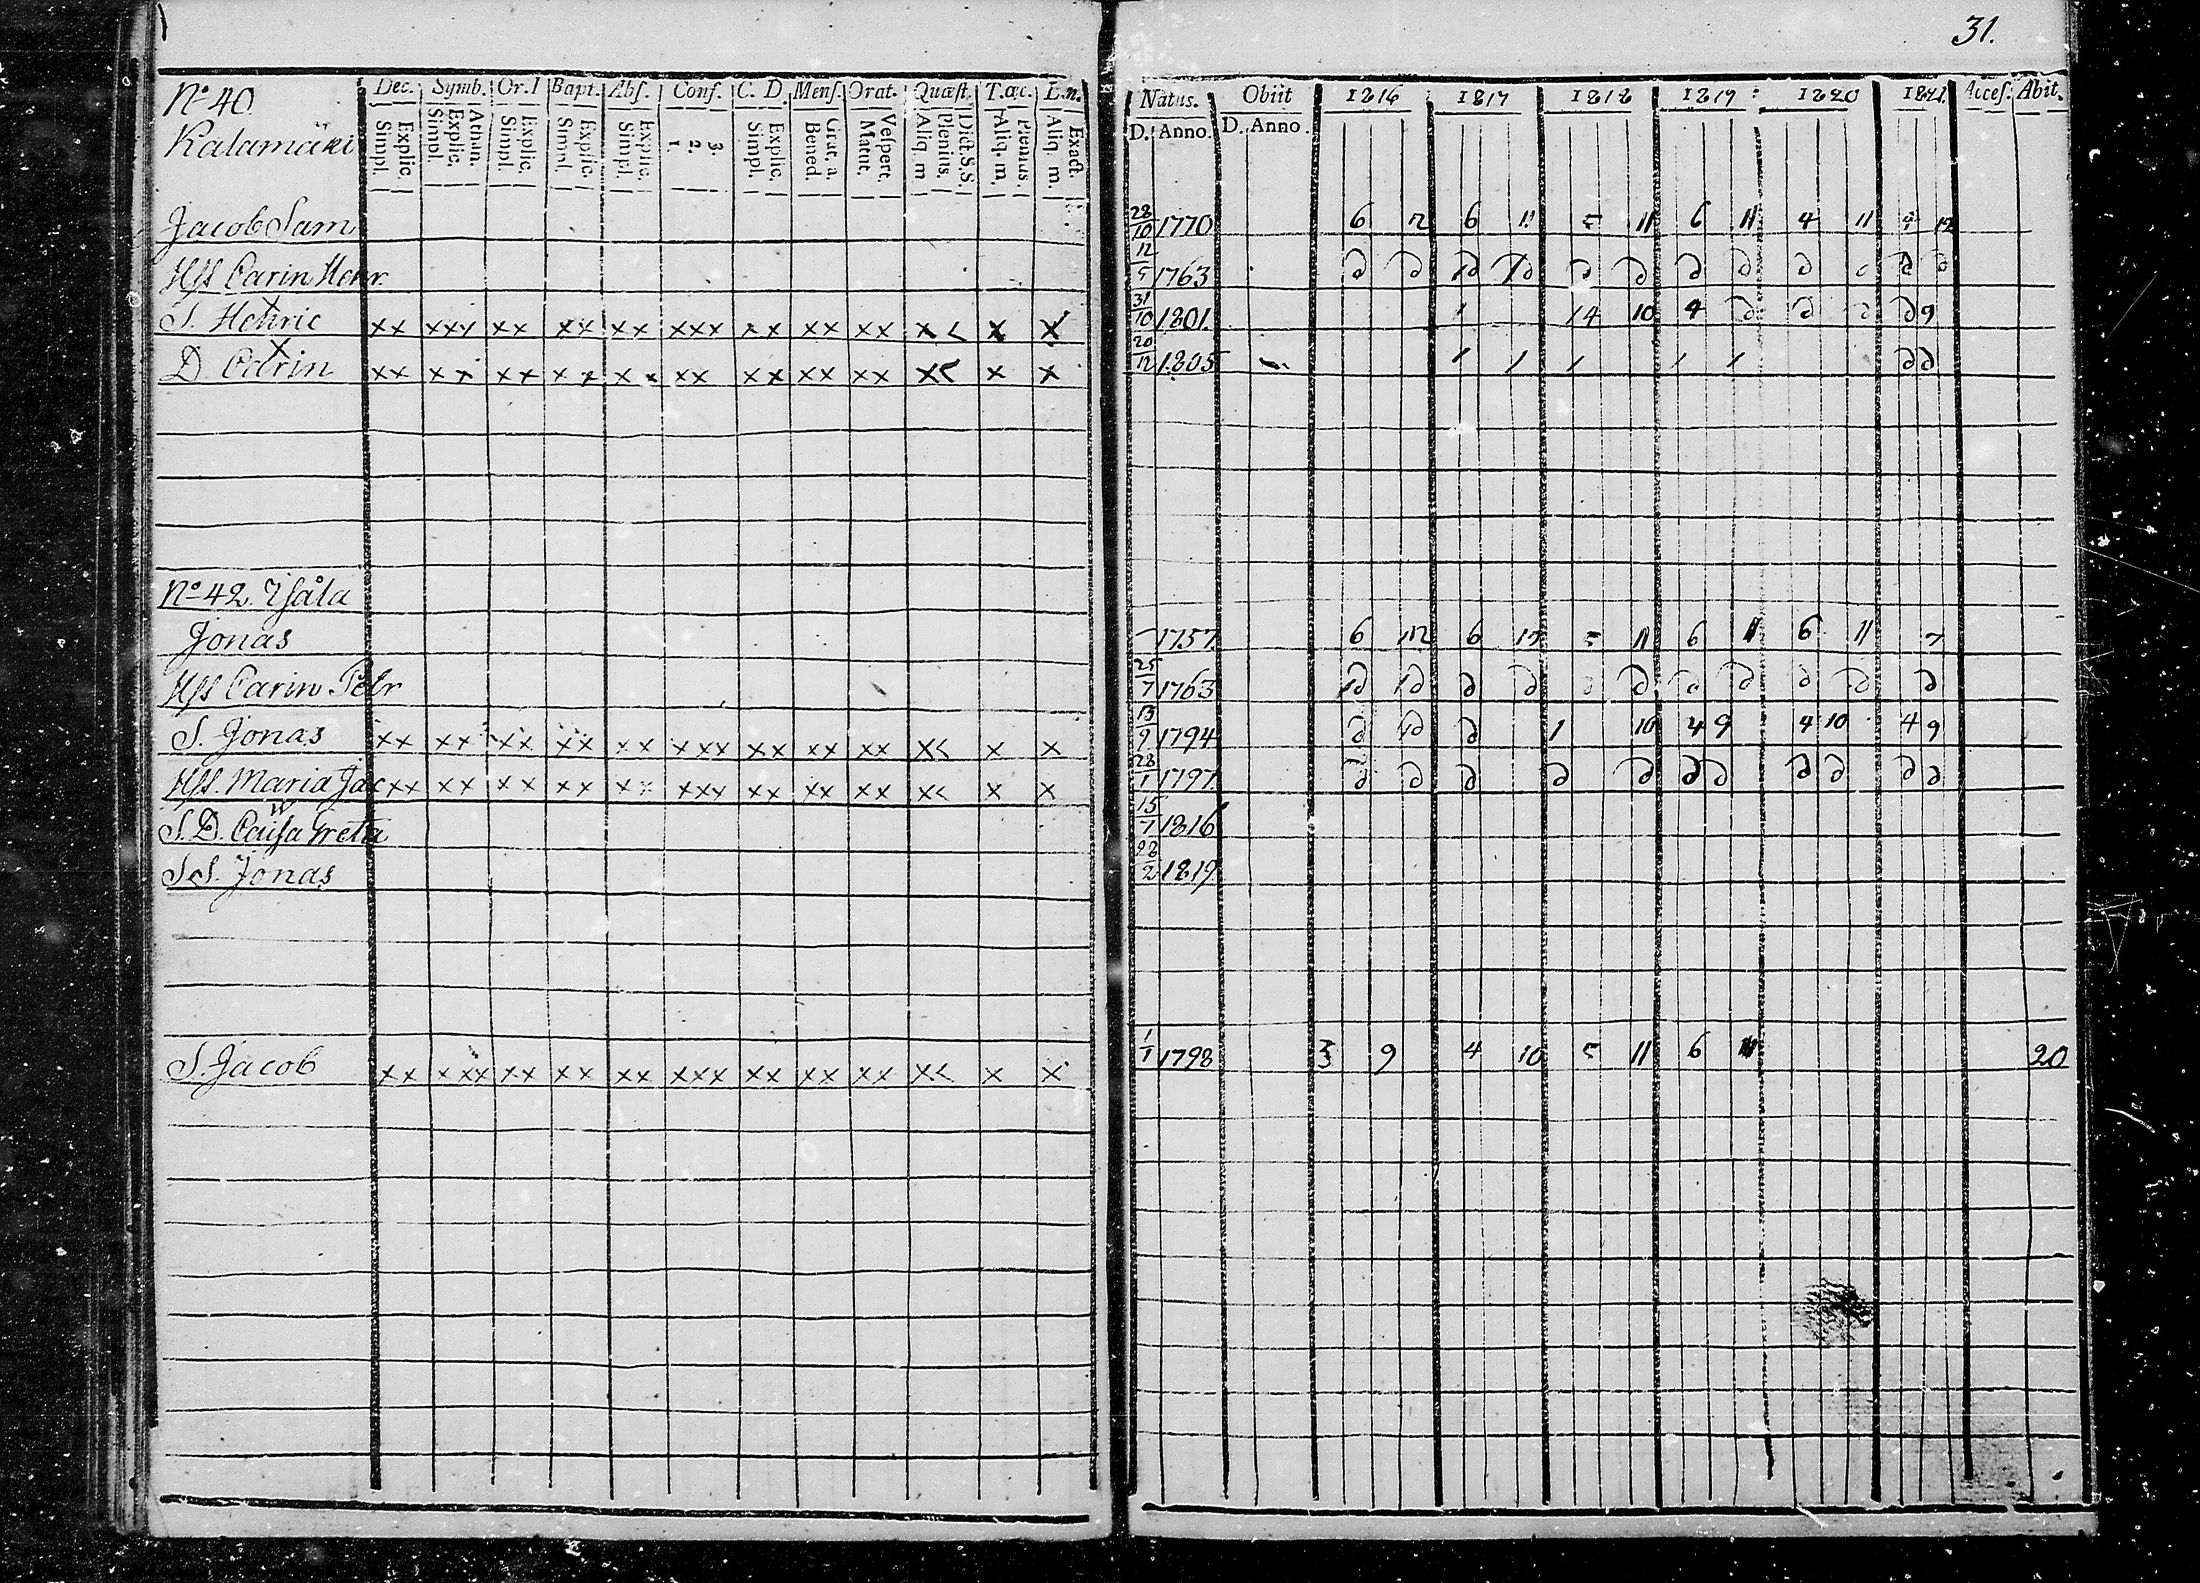 31.
No 40 Dec. Symb. Or. I Bapt. Abſ. Conf. C. D. Menſ. Orat. Quæſt. T. œc.
Kalamäki Explic. Simpl. Athan. Explic. Simpl. Explic. Simpl. Explic. Simpl. Explic. Simpl. 3. 2. 1 Explic. Simpl. Grat. a. Bened. Veſpert. Matut. Dict. S.S. Plenius. Aliq. m Plenius. Aliq. m. Exact. Aliq. m.
Natus. Obiit 1816 1817 1818 1819 1820 1821 Acceſ. Abit.
D. Anno. D. Anno.
Jacob Sam 28/10 1770 6 12 6 11 5 11 6 11 4 11 12
Hſſ Carin Henr. 12/5 1763
S. Henric xx xxx xx xx xx xxx xx xx xx x< x x 31/10 1801 1 14 10 4 9
D Catrin xx xx xx xx xx xx xx xx xx x< x x 20/12 1805 1 1 1 1 1
No 42. Yſåla
Jonas 1757 6 12 6 12 5 11 6 11 6 11 7
Hſſ Carin Petr 25/7 1763
S. Jonas xx xx xx xx xx xxx xx xx xx x< x x 13/9 1794 1 10 4 9 4 10 4 9
Hſſ. Maria Jac xx xx xx xx xx xxx xx xx xx x< x x 28/1 1797
S. D. Caiſa Greta 15/7 1816
S S. Jonas 28/2 1819
S. Jacob xx xxx xx xx xx xxx xx xx xx x< x x 1/1 1798 3 9 4 10 5 11 6 11 20